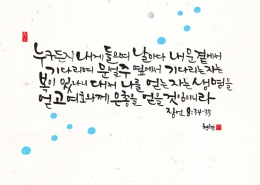 누구든지 내게 들으며 날마다 내 문 곁에서
기다리며 문설주 옆에서 기다리는 자는
복이 있나니 대저 나를 얻는 자는 생명을
얻고 여호와께 은총을 얻을 것임이니라
잠언 8:34-35